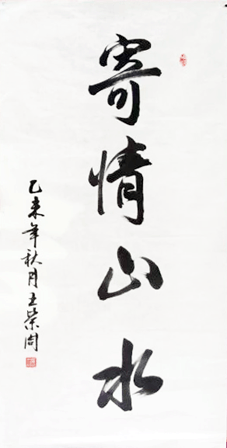 寄情山水
乙未年秋月王荣周